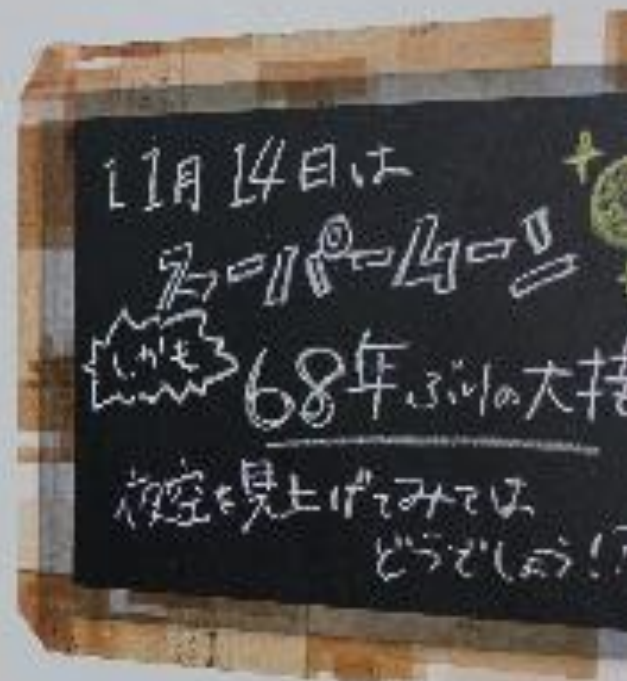 11月14日は
スーパームーン
しかも
68年ぶりの大接
夜空を見上げてみては
どうでしょう!?